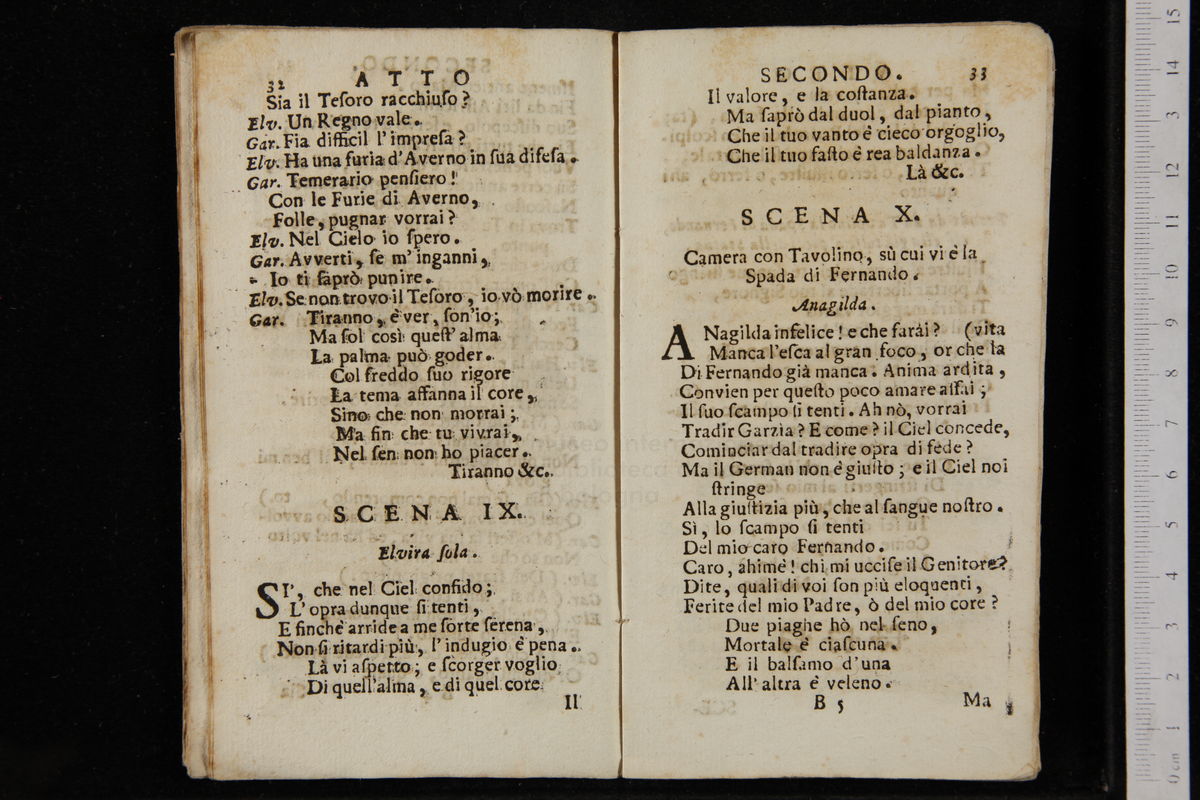 32 ATTO
Sia il Teſoro racchiuſo?
Elv. Un Regno vale.
Gar. Fia difficil l'impreſa?
Elv. Ha una furia d'Averno in ſua difeſa.
Gar. Temerario penſiero!
Con le Furie di Averno,
Folle, pugnar vorrai?
Elv. Nel Cielo io ſpero.
Gar. Avverti, ſe m'inganni,
Io ti ſaprò punire.
Elv. Se non trovo il Teſoro, io vò morire.
Gar. Tiranno, è ver, ſon'io;
Ma ſol così queſt'alma
La palma può goder.
Col freddo ſuo rigore
La tema affanna il core,
Sino che non morrai;
Ma fin che tu vivrai,
Nel ſen non ho piacer.
Tiranno &c.
SCENA IX.
Elvira ſola.
SI', che nel Ciel confido;
L'opra dunque ſi tenti,
E finchè arride a me ſorte ſerena,
Non ſi ritardi più, l'indugio è pena.
Là vi aſpetto; e ſcorger voglio
Di quell'alma, e di quel core
Il
SECONDO. 33
Il valore, e la coſtanza.
Ma ſaprò dal duol, dal pianto,
Che il tuo vanto è cieco orgoglio,
Che il tuo faſto è rea baldanza.
Là &c.
SCENA X.
Camera con Tavolino, sù cui vi è la
Spada di Fernando.
Anagilda.
ANagilda infelice! e che farai? (vita
Manca l'eſca al gran foco, or che la
Di Fernando già manca. Anima ardita,
Convien per queſto poco amare aſſai;
Il ſuo ſcampo ſi tenti. Ah nò, vorrai
Tradir Garzia? E come? il Ciel concede,
Cominciar dal tradire opra di fede?
Ma il German non è giuſto; e il Ciel noi
ſtringe
Alla giuſtizia più, che al ſangue noſtro.
Sì, lo ſcampo ſi tenti
Del mio caro Fernando.
Caro, ahimè! chi mi uccife il Genitore?
Dite, quali di voi ſon più eloquenti,
Ferite del mio Padre, ò del mio core?
Due piaghe hò nel ſeno,
Mortale è ciaſcuna.
E il balſamo d'una
All'altra è veleno.
B 5 Ma